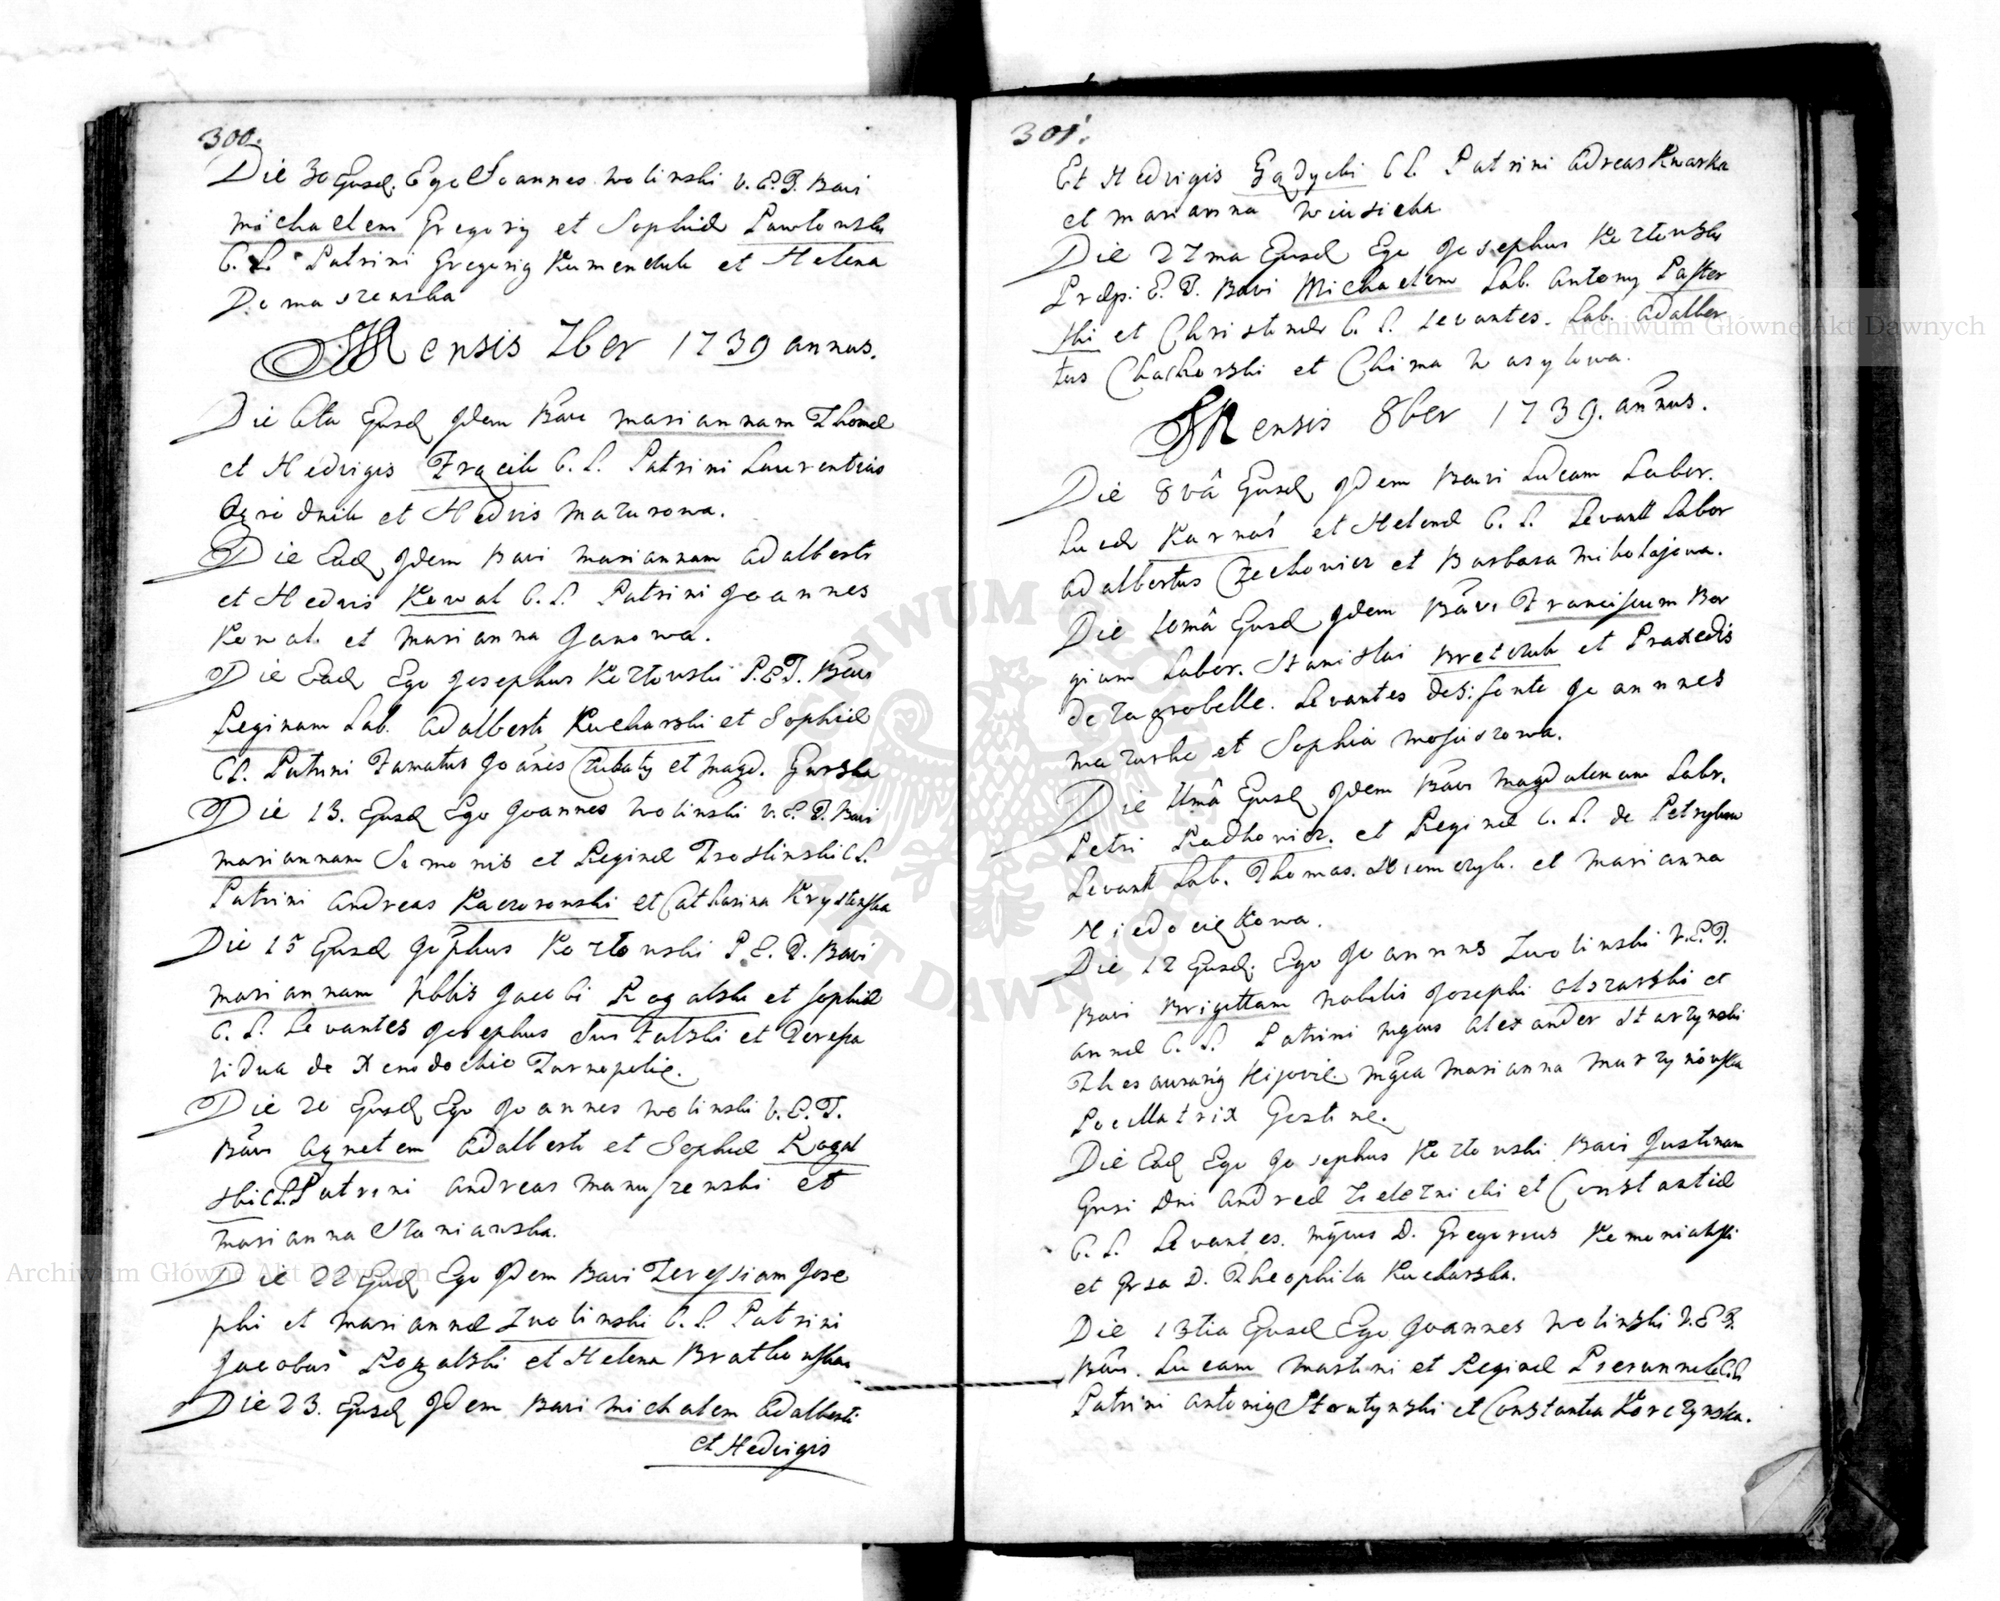 300.
Die 30 Eusd. Ego Joannes Wolinski V. E. T. Bavi
Michaelem Gregorij et Sophiæ Pawłowski
C. L. Patrini Gregorig Kumenduk et Helena
Domaszewska
Mensis 7ber 1739 annus.
Die 6ta Eusd Idem Bavi Mariannam Thomæ
et Hedvigis Frącik C. L. Patrini Laurentius
et Hedvis Mazurowa.
Die Ead Idem Bavi Mariannam Adalberti
et Hedvis Kowal C. L. Patrini Joannes
Kowal. et Marianna Janowa.
Die Ead Ego Josephus Kozłowski P. E. T. Bavi
Reginam Lab. Adalberti Kucharski et Sophiæ
CL. Patrini Famatus Joanes Czubaty et Magd. Gurska
Die 13. Eusd Ego Joannes Wolinski V. E. T. Bavi
Mariannam Simonis et Reginæ Trostinski CL.
Patrini Andreas Kaczorowski et Catharina Krystynska
Die 15 Eusd Josephus Kozłowski P. E. T. Bavi
Mariannam Nblis Jacobi Rogalski et Sophiæ
C. L. Levantes Josephus et Teresa
Vidua de Xenodochio Tarnopolie.
Die 20 Eusd Ego Joannes Wolinski V. E. T.
Bavi Agnetem Adalberti et Sophiæ Rogal
ski CL. Patrini Andreas Manuszewski et
Marianna Staniawska.
Die 22 Eusd Ego Idem Bavi Teressiam Jose
phi et Mariannæ Zwolinski C. L. Patrini
Jacobus Rogalski et Helena Bratkowska
Die 23. Eusd Idem Bavi Michalem Adalberti
et Hedvigis
301.
Et Hedvigis Gądycki C L. Patrini Adreas Kwaska
et Marianna
Die 27ma Eusd Ego Josephus Kozłowski
Præp: E. T. Bavi Michaelem Lab. Antony Paster
ski et Christinæ C. L. Levantes. Lab. Adalber
tus Chachorski et Chima Wasylowa.
Mensis 8ber 1739. annus.
Die 8vâ Eusd Idem Bavi Lucam Labor.
Lucæ Karnaś et Helenæ C. L. Levant Labor
Adalbertus Czechowicz et Barbara Mikołajowa.
Die 10mâ Eusd Idem Bavi Franciscum Bor
giam Labor. Stanislai Bretczuk et Praxedis
de Zagrobelle. Levantes de S: fonte Joannnes
Mazurke et Sophia Mosiiszowa.
Die 11mâ Eusd Idem Bavi Magdalenam Labr.
Petri Radkowicz. et Reginæ C. L. de Petrykow
Levant Lab. Thomas. Sciemczyk. et Marianna
Niedociękowa.
Die 12 Eusd. Ego Joannns Zwolinski V. E. T.
Bavi Brigittam Nobilis Josephi Olszaski et
Annæ C. L. Patrini Mgcus Alexander Starzynski
Thesaurarig Kijoviæ. Mgca Marianna Murzynowska
Pocillatrix Gostine.
Die Ead Ego Josephus Kozłowski Bavi Justinam
Grosi Dni Andreæ Zieloznicki et Constantiæ
C. L. Levantes. Mgcus D. Gregorius Komoniatski
et Grsa D. Theophila Kucharska.
Die 13tia Eusd Ego Joannes Wolinski V. E. T.
Bavi. Lucam Martini et Reginæ C. L.
Patrini Antonig Stratynski et Constantia Korczynska.
Archiwum Główne Akt Dawnych
Archiwum Główne Akt Dawnych
ARCHIWUM GŁÓWNE AKT DAWNYCH